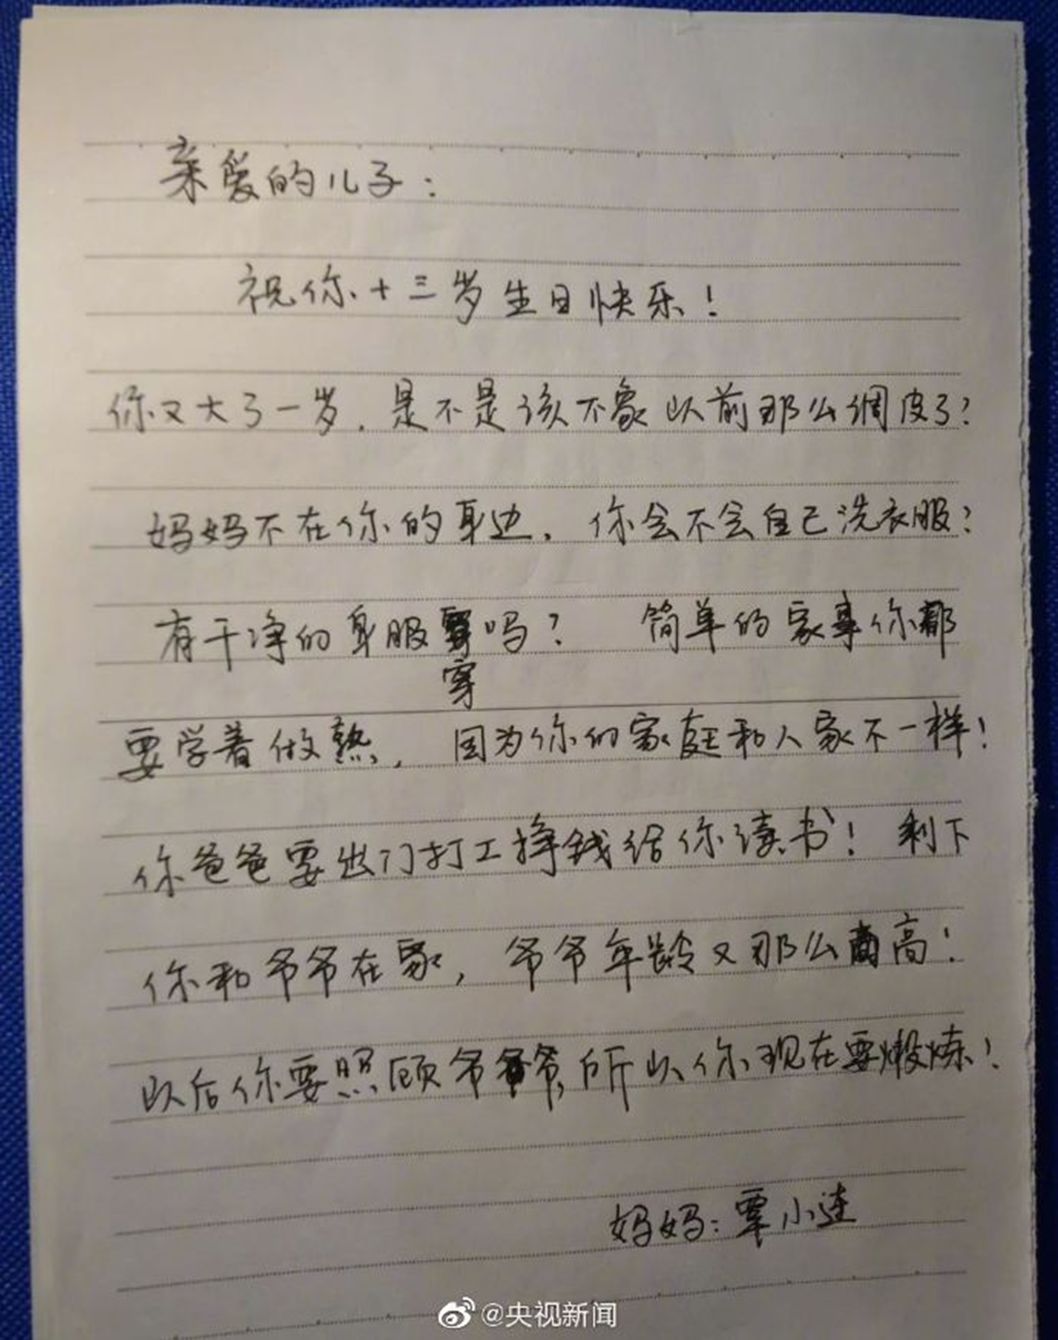 亲爱的儿子：
祝你十三岁生日快乐！
你又大了一岁，是不是该不象以前那么调皮了？
妈妈不在你的身边，你会不会自己洗衣服？
有干净的身服吗？ 简单的家事你都
穿
要学着做熟，因为你们家庭和人家不一样！
你爸爸要出门打工挣钱给你读书！剩下
你和爷爷在家，爷爷年龄又那么高！
以后你要照顾爷爷，所以你现在要煅炼！
妈妈：覃小连
@央视新闻